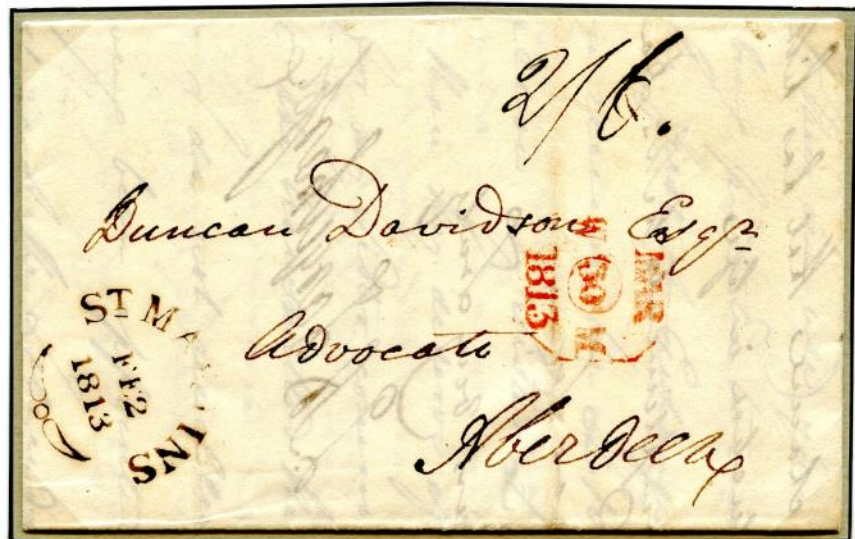 2/6.
Duncan Davidson Esqr
Advocate
Aberdeen
ST MA INS
FE2
1813
MAR
30
1813